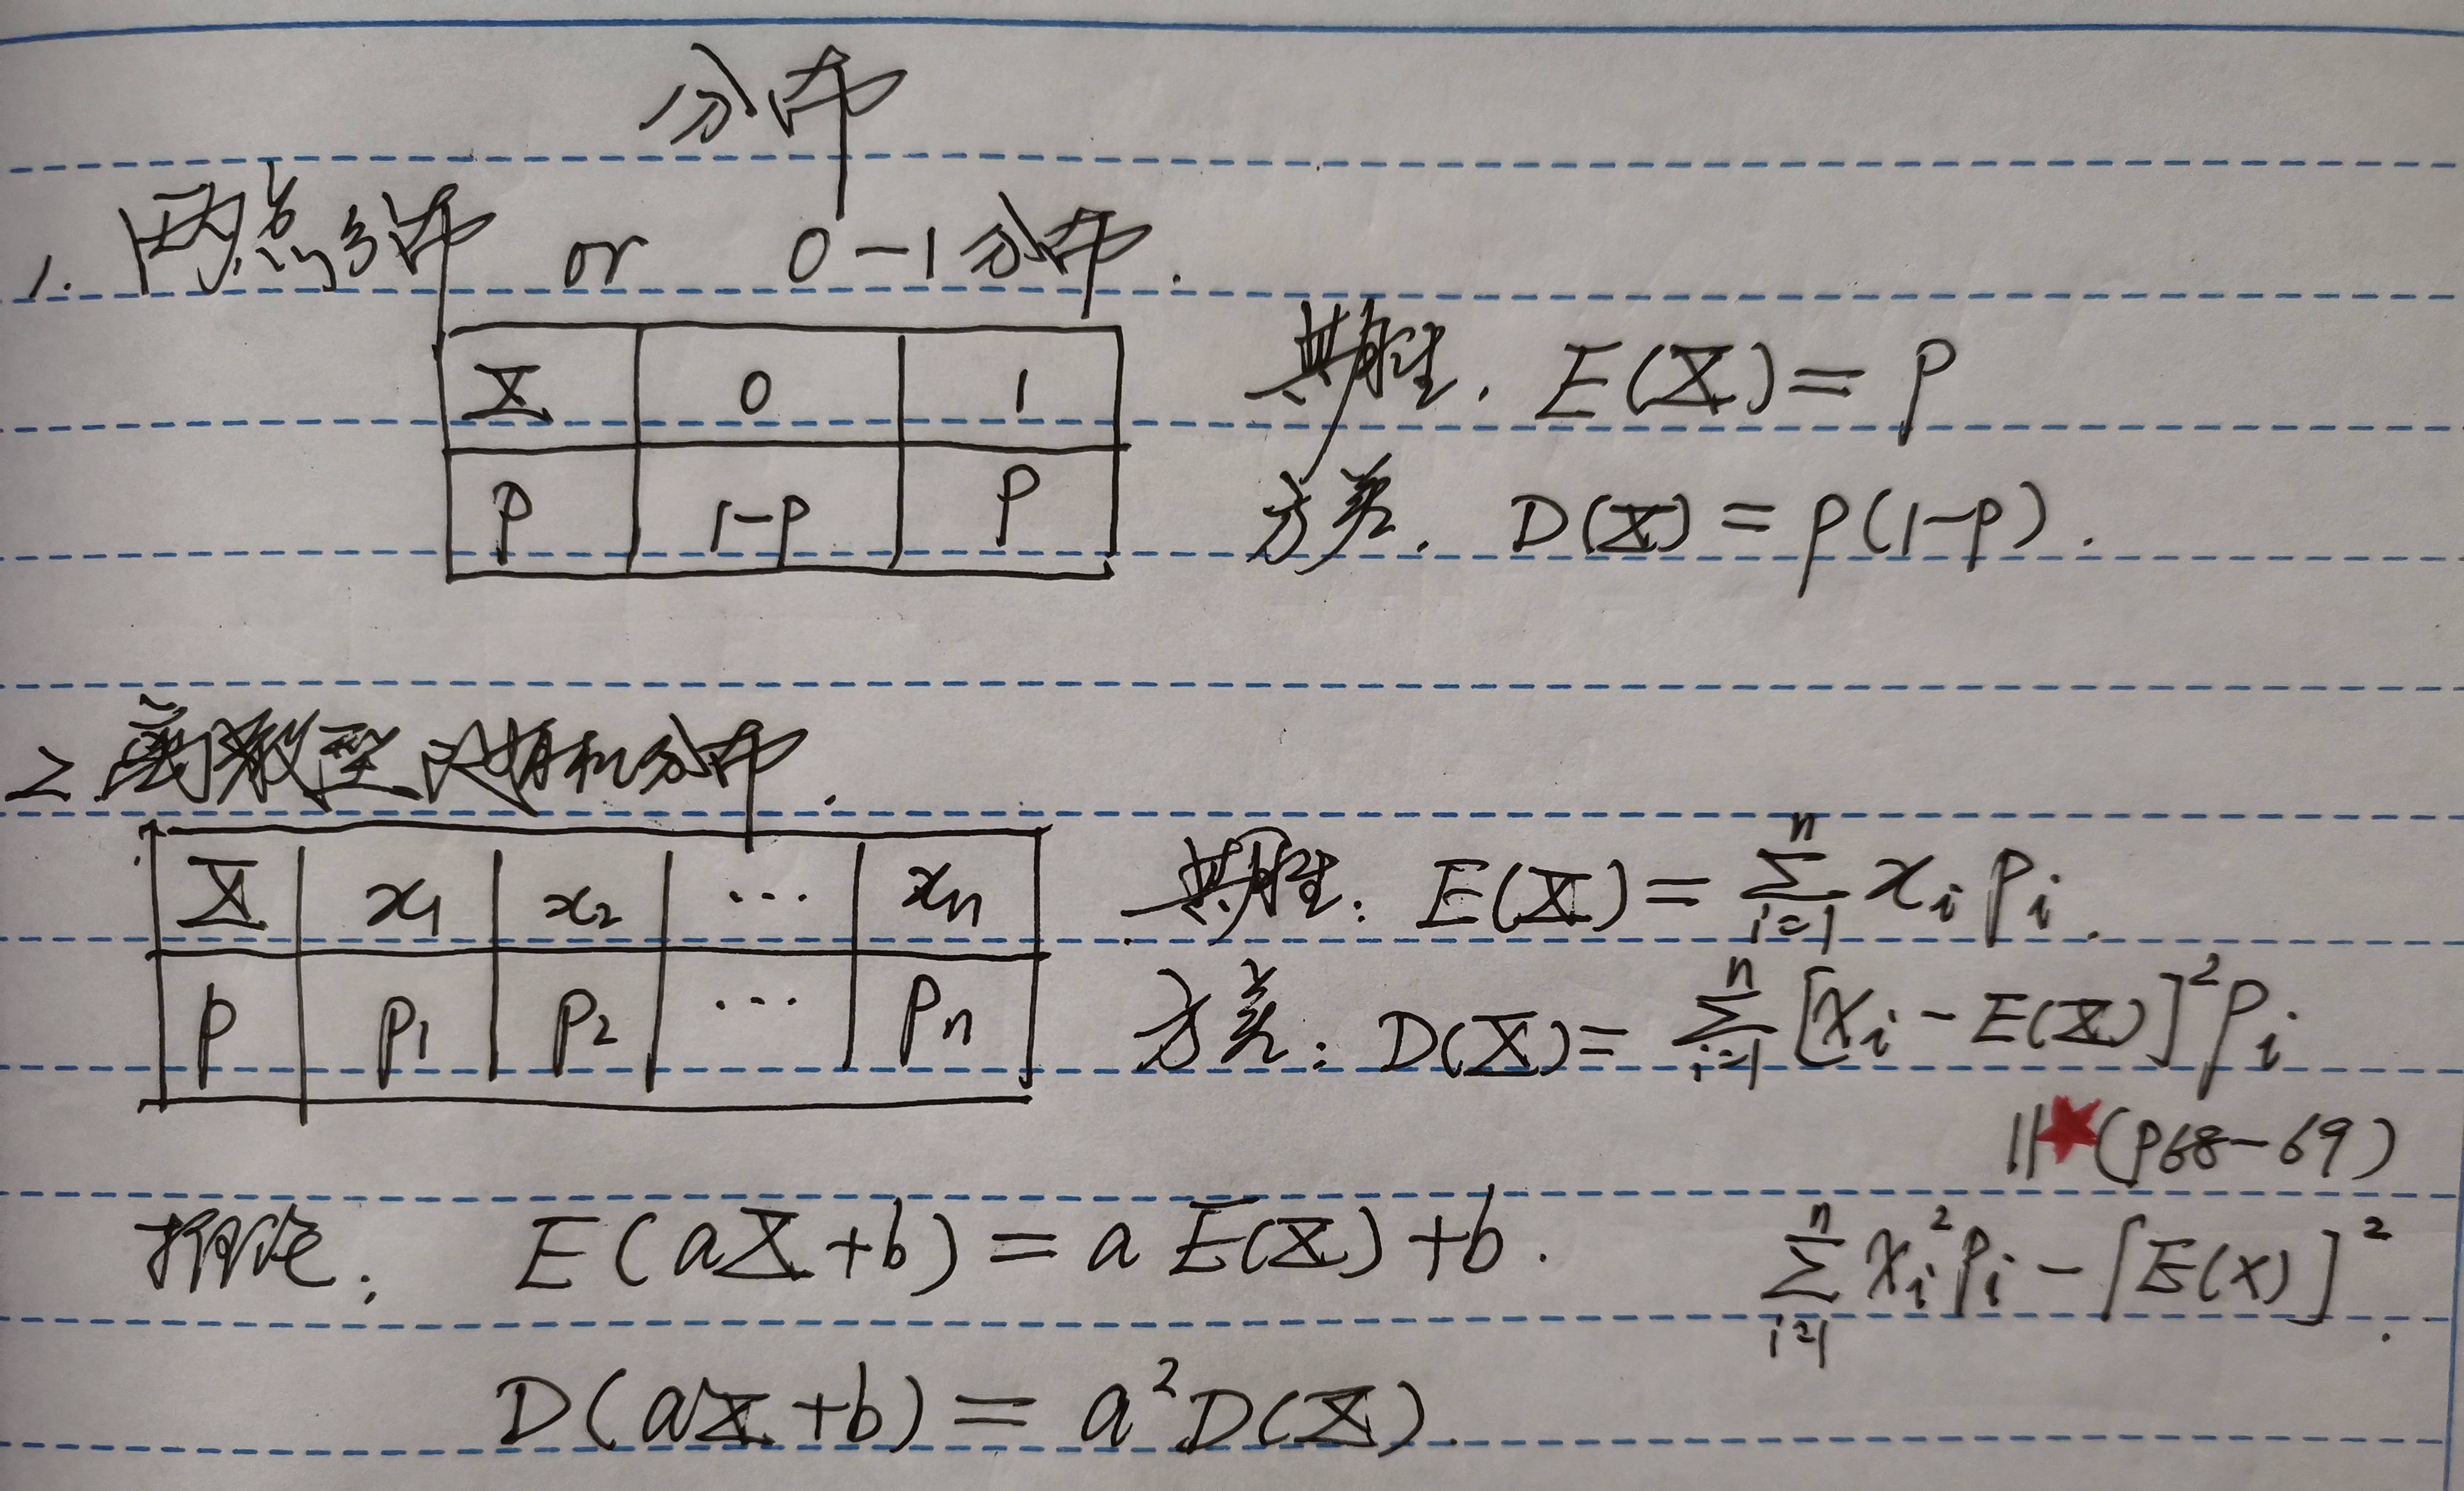 分布
1. 两点分布 or 0-1分布.
X 0 1
P 1-p p
期望. E(X) = p
方差. D(X) = p(1-p).
2 离散型随机分布.
X x₁ x₂ ... xₙ
P p₁ p₂ ... pₙ
期望: E(X) = ∑ⁿᵢ₌₁ xᵢ pᵢ.
方差: D(X) = ∑ⁿᵢ₌₁ [xᵢ - E(X)]² pᵢ
|| ★ (P68-69)
∑ⁿᵢ₌₁ xᵢ² pᵢ - [E(X)]².
推论: E(aX+b) = aE(X)+b.
D(aX+b) = a²D(X).